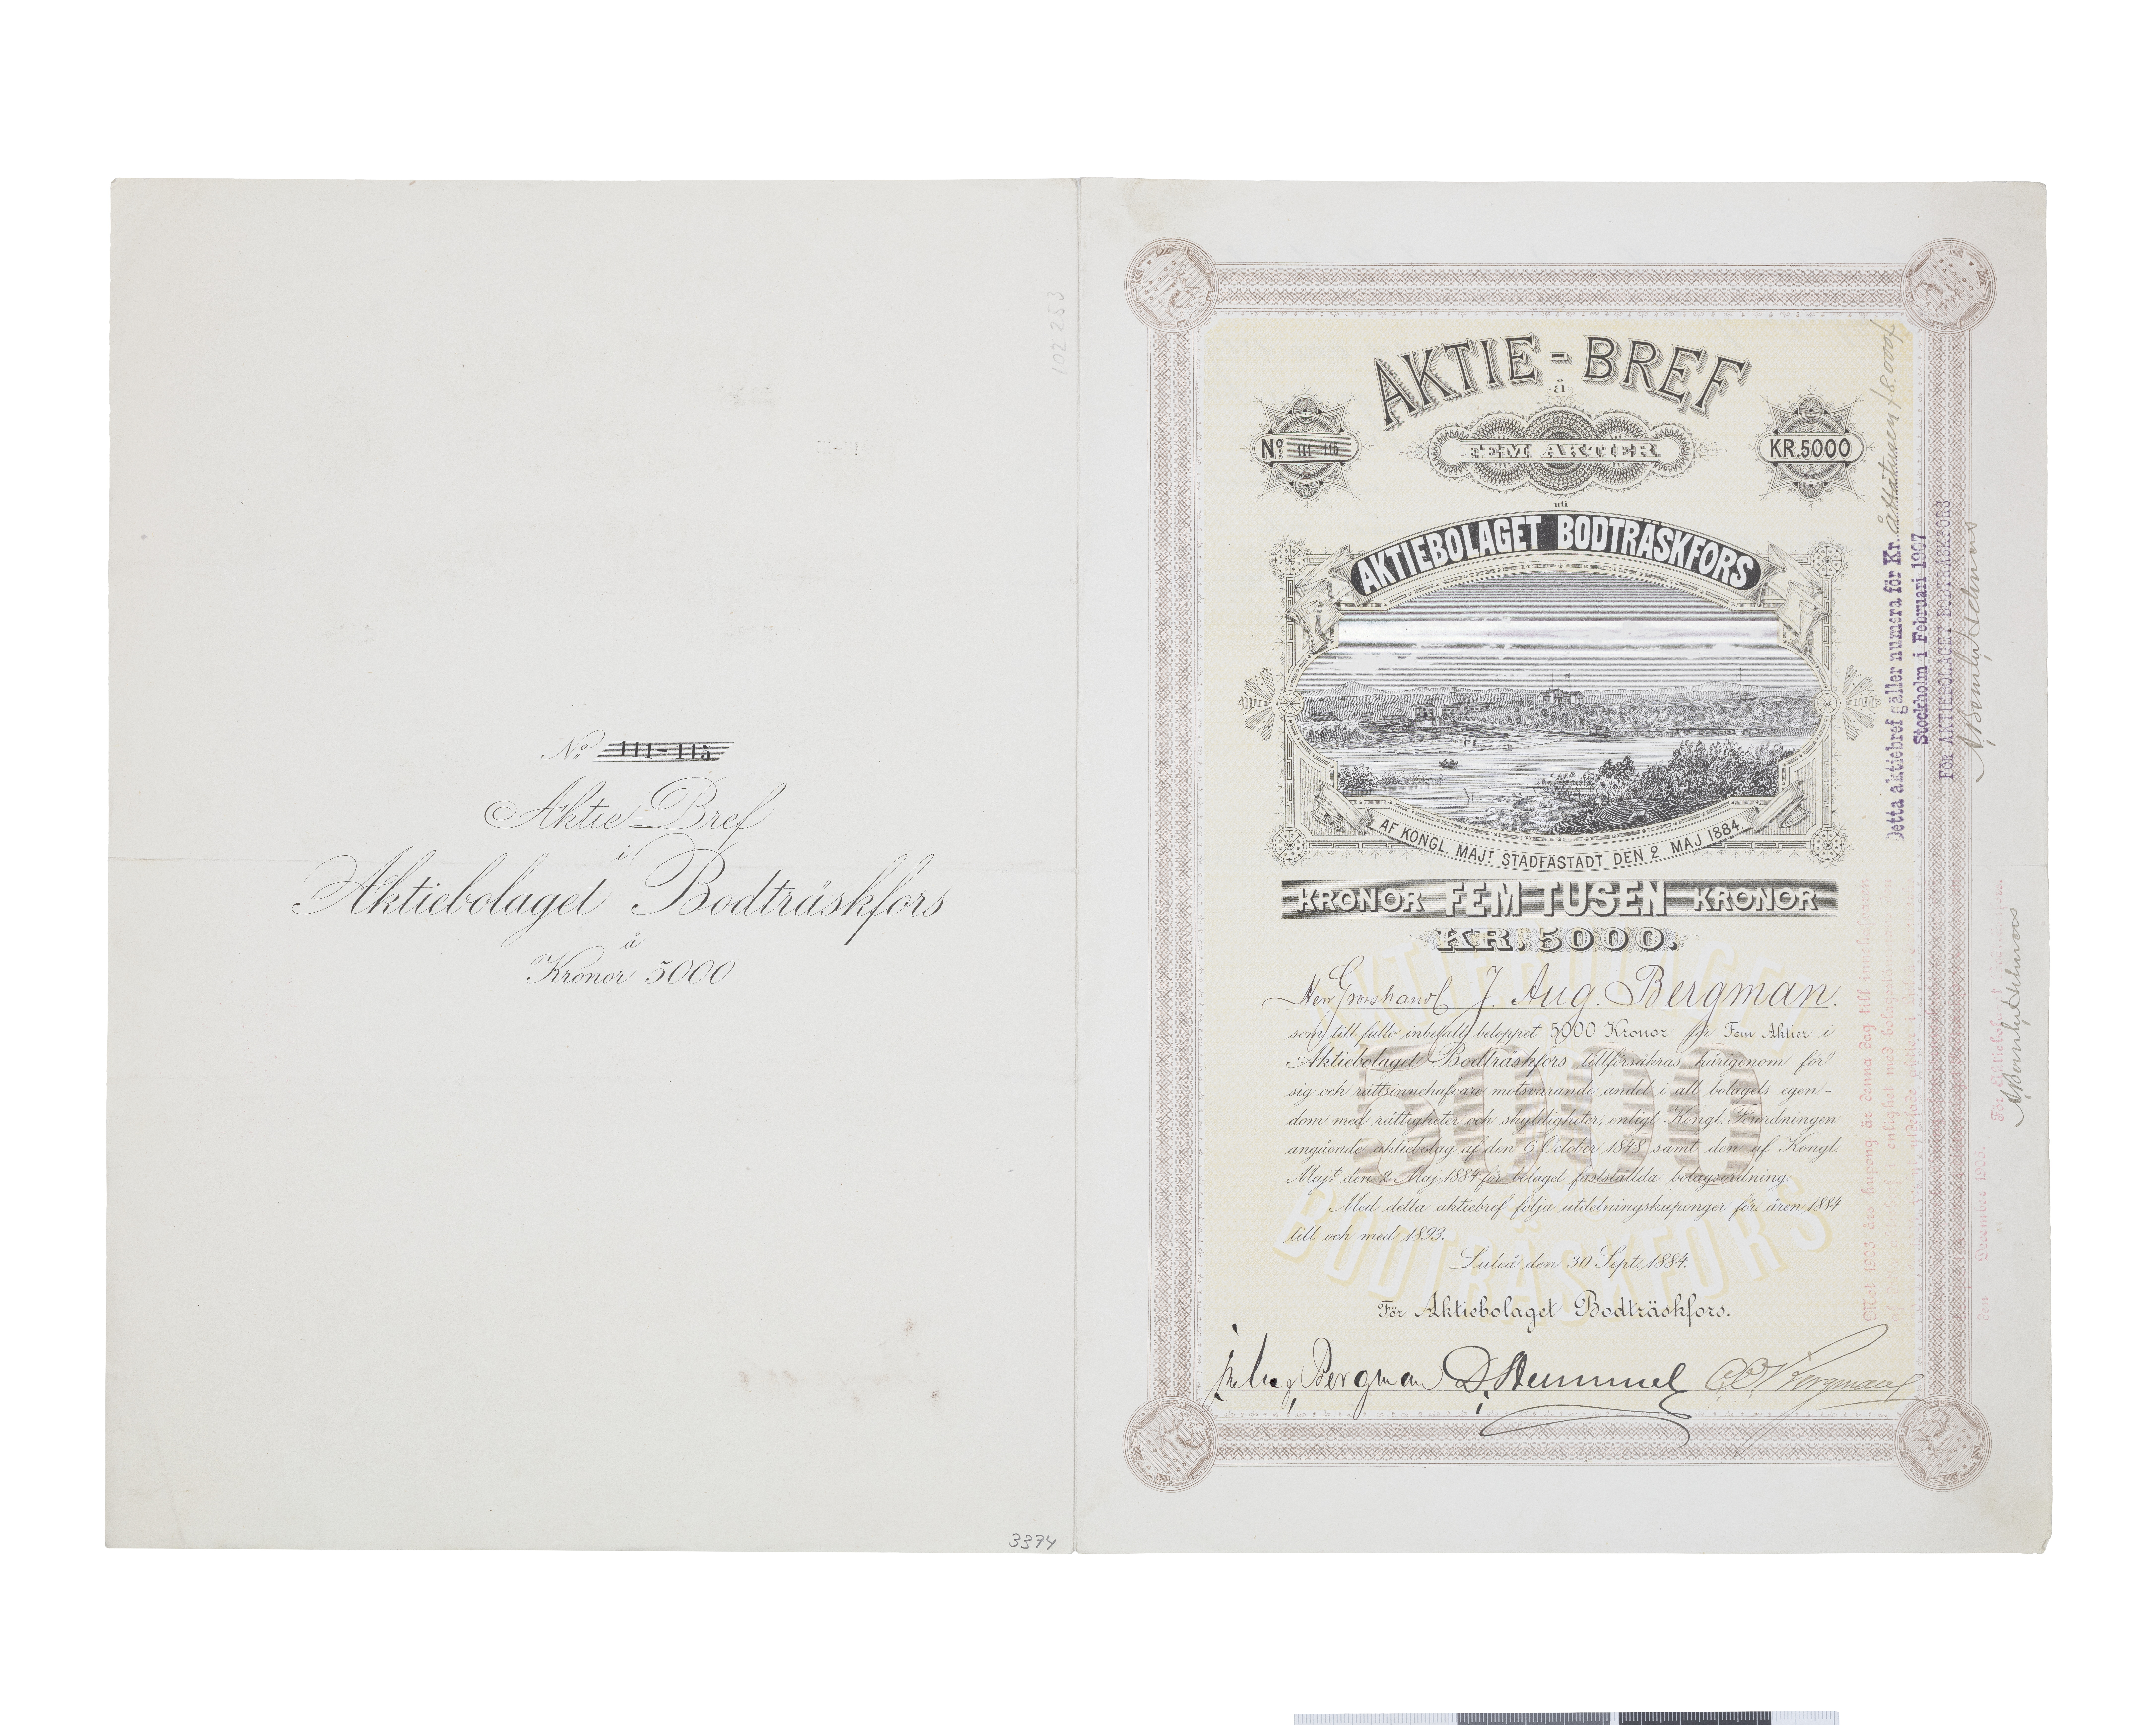 102 253
No 111-115
Aktie-Bref
i
Aktiebolaget Bodträskfors
à
Kronor 5000
3374
AKTIE-BREF
à
No 111-115
FEM AKTIER
KR.5000
uti
AKTIEBOLAGET BODTRÄSKFORS
AF KONGL. MAJT STADFÄSTADT DEN 2 MAJ 1884.
KRONOR FEM TUSEN KRONOR
KR. 5000.
Herr Grosshandl J. Aug. Bergman.
som till fullo inbetalt beloppet 5000 Kronor för Fem Aktier i
Aktiebolaget Bodträskfors tillförsäkras härigenom för
sig och rättsinnehafvare motsvarande andel i all bolagets egen-
dom med rättigheter och skyldigheter, enligt Kongl. Förordningen
angående aktiebolag af den 6 October 1848 samt den af Kongl.
Majt den 2 Maj 1884 för bolaget fastställda bolagsordning.
Med detta aktiebref följa utdelningskuponger för åren 1884
till och med 1893.
Luleå den 30 Sept. 1884.
För Aktiebolaget Bodträskfors.
Joh. Aug. Bergman D. Hummel Bergman
AKTIEBOLAGET
5000
BODTRÄSKFORS
Detta aktiebref gäller numera för Kr. åttatusen / 8.000/
Stockholm i Februari 1907
FÖR AKTIEBOLAGET BODTRÄSKFORS
Mot 1903 års kupong är denna dag till innehafvaren
i enlighet med
den December 1903.
För Aktiebolaget